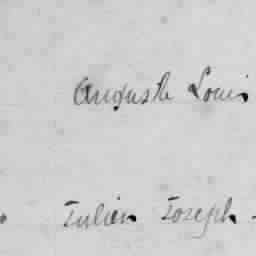 Auguste Louis
Julien Joseph